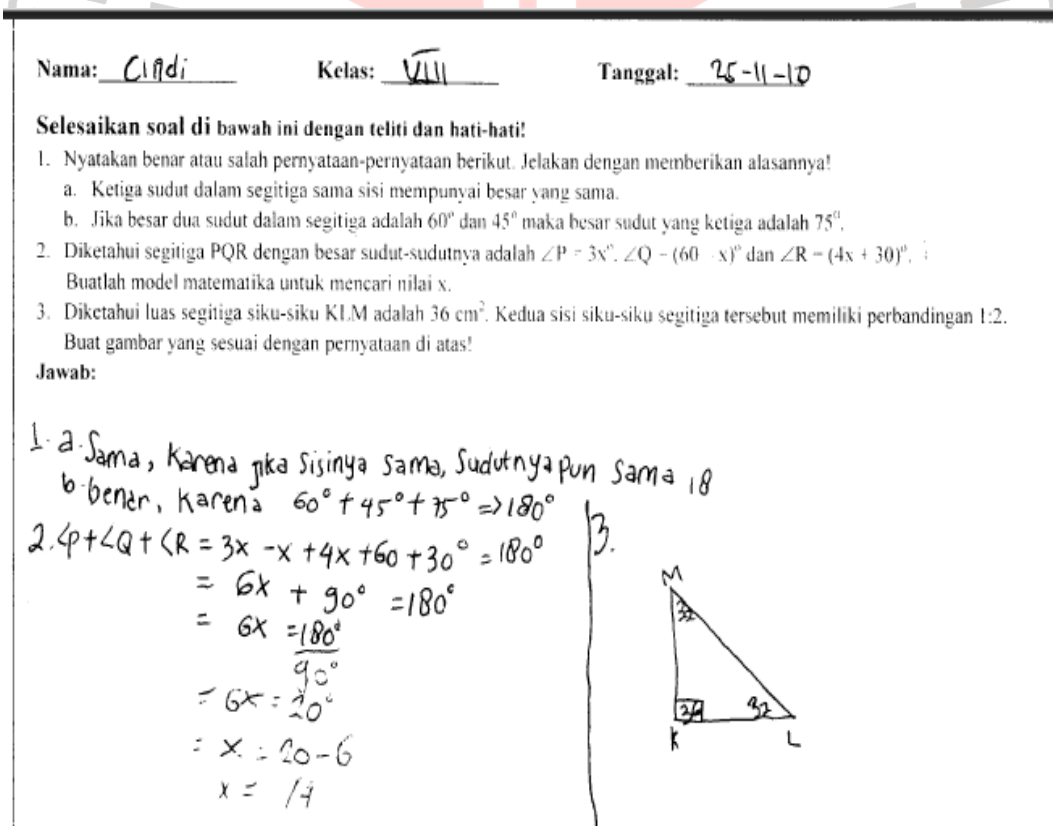 Nama: Cindi Kelas: VIII Tanggal: 25-11-10
Selesaikan soal di bawah ini dengan teliti dan hati-hati!
1. Nyatakan benar atau salah pernyataan-pernyataan berikut. Jelakan dengan memberikan alasannya!
a. Ketiga sudut dalam segitiga sama sisi mempunyai besar yang sama.
b. Jika besar dua sudut dalam segitiga adalah 60° dan 45° maka besar sudut yang ketiga adalah 75°.
2. Diketahui segitiga PQR dengan besar sudut-sudutnya adalah ∠P = 3x°. ∠Q = (60 x)° dan ∠R = (4x + 30)°.
Buatlah model matematika untuk mencari nilai x.
3. Diketahui luas segitiga siku-siku KLM adalah 36 cm². Kedua sisi siku-siku segitiga tersebut memiliki perbandingan 1:2.
Buat gambar yang sesuai dengan pernyataan di atas!
Jawab:
1. a. Sama, Karena jika Sisinya Sama, Sudutnya pun Sama
b. benar, Karena 60° + 45° + 75° => 180°
2. <P+<Q+<R = 3x -x +4x +60 +30° = 180°
= 6x + 90° = 180°
= 6x = 180°
90°
= 6x = 20°
= x = 20-6
x = 14
3.
M
32
32
K
L